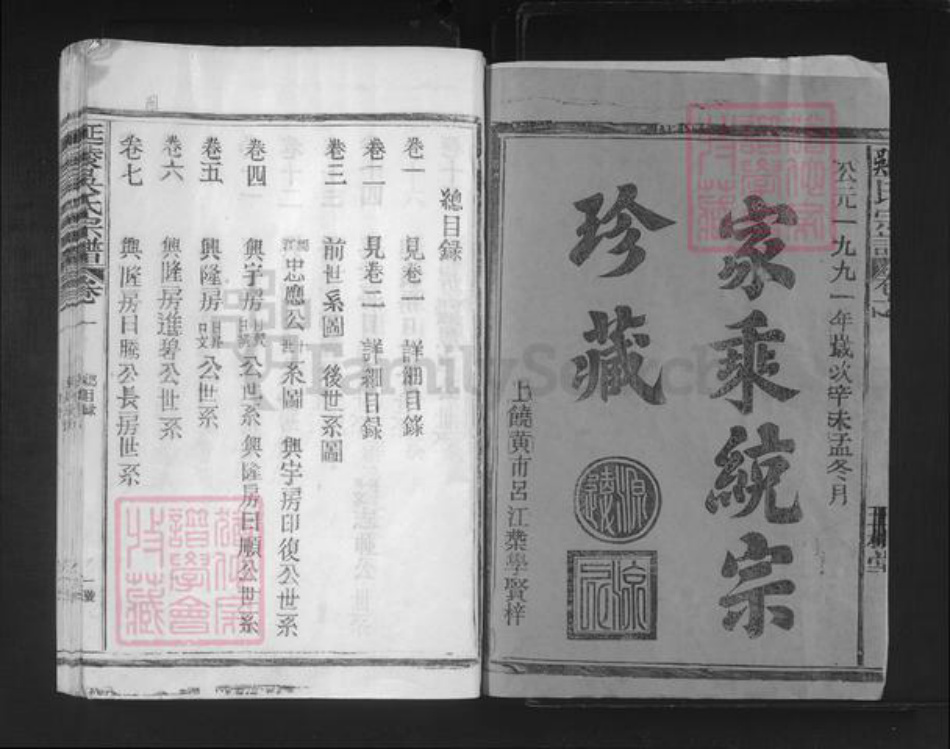 公元一九九一年歲次辛未孟冬月
家乘統宗
珍藏
上饒黃市呂江葉學賢梓
總目錄
卷一 見卷一詳細目錄
卷二 見卷二詳細目錄
卷三 前世系圖 後世系圖
忠應公世系圖 興宇房印復公世系
卷四 興宇房公世系 興隆房日順公世系
卷五 興隆房公世系
卷六 興隆房進碧公世系
卷七 興隆房日騰公長房世系
吳氏宗譜
總目錄
FamilySearch
譜學會
收藏